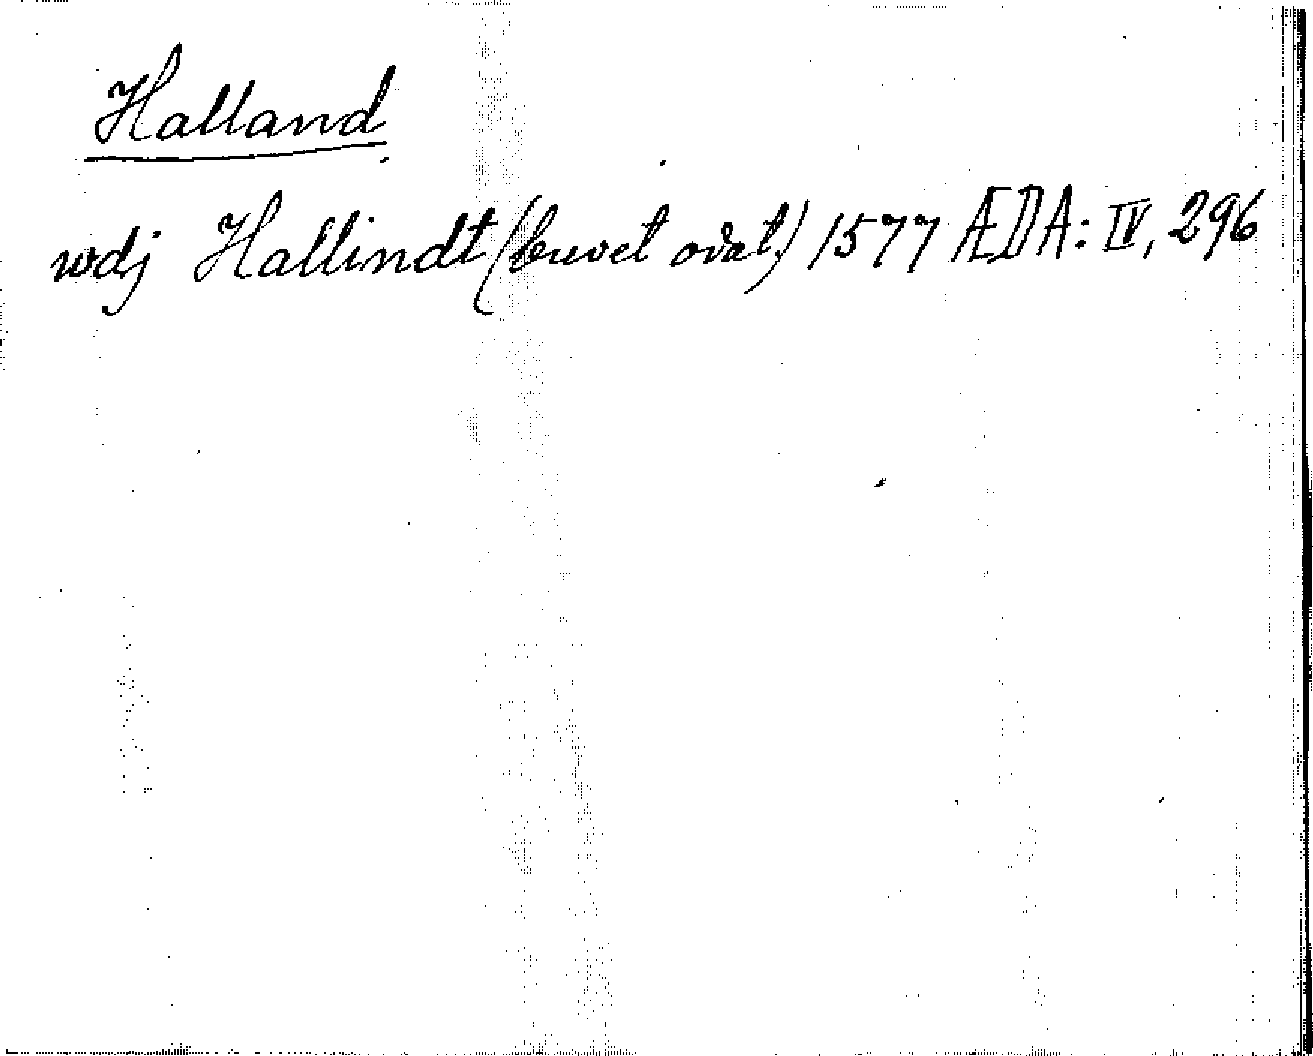 Halland
wdj Hallindt (brevet odat.) 1577 ÆDA: IV, 296